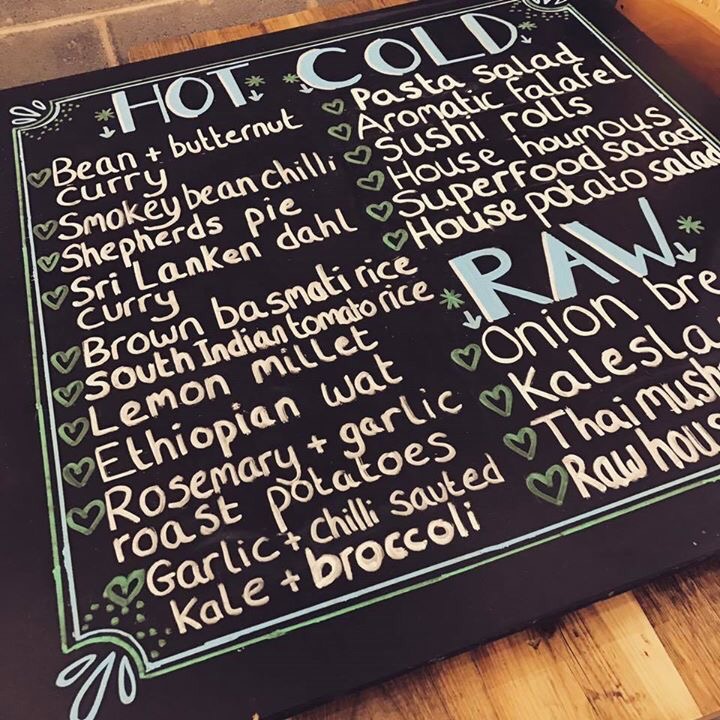 HOT
Bean + butternut
curry
Smokey bean chilli
Shepherds pie
Sri Lanken dahl
curry
Brown basmati rice
South Indian tomato rice
Lemon millet
Ethiopian wat
Rosemary + garlic
roast potatoes
Garlic + chilli sauted
Kale + broccoli
COLD
Pasta salad
Aromatic falafel
Sushi rolls
House houmous
Superfood salad
House potato salad
RAW
Onion bre
Kalesla
Thai mush
Raw hou